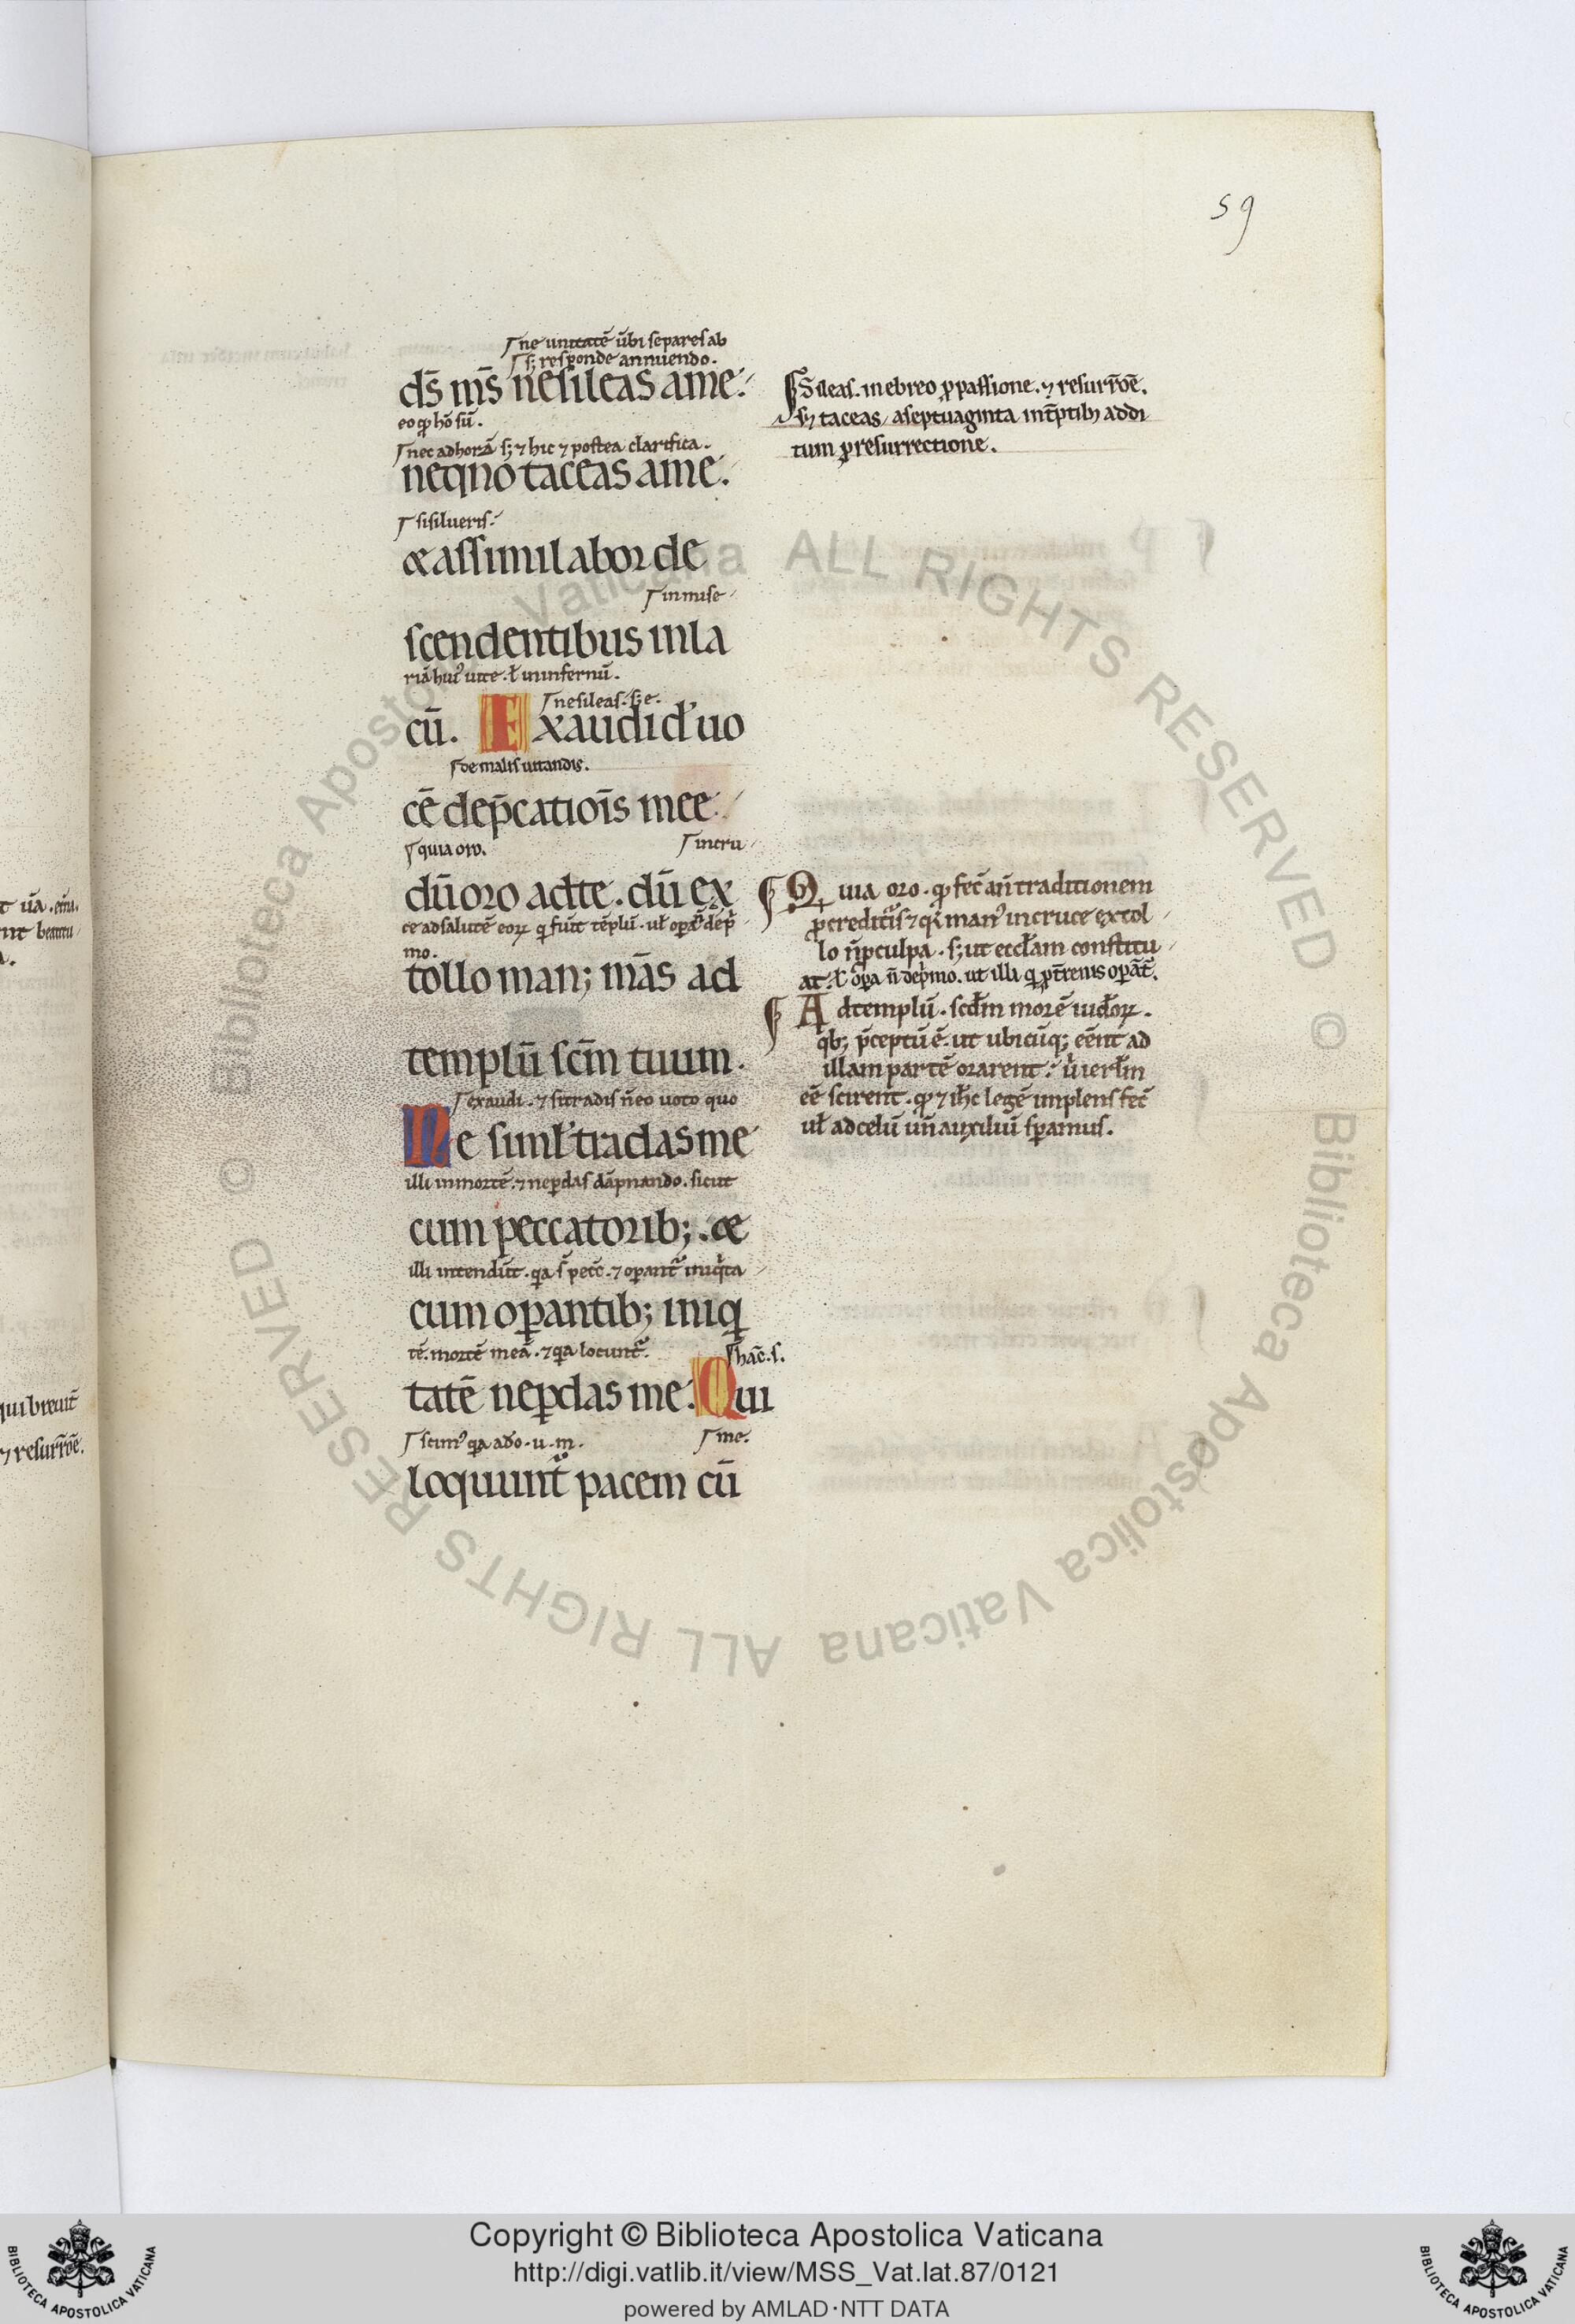 59
ne unitatē ūbi separes ab
s; responde annuendo.
ds̄ ms̄ ne sileas a me.
eo qp hō sū.
nec ad horā s; ⁊ hic ⁊ postea clarifica.
neqnō taceas a me.
si silueris.
& assimilabor de
in mise
scendentibus in la
riā hui᾽ uite. ł in infernū.
ne sileas. s;e.
cū. Exaudi d᾽ uo
de malis uitandis.
cē dep̄catiōis mee
quia oro. in cru
dū oro ad te. dū ex
ce ad salutē eoꝝ q̄ sūt tēplū. uł opa
mo.
tollo man; mās ad
templū scm̄ tuum.
exaudi. ⁊ si tradis n̄ eo uoto quo
Ne siml᾽ tradas me
illi in mortē. ⁊ ne ꝑdas dāpnando. sicut
cum peccatorib; . &
illi intendūt. ⁊ oꝑant᾽ iniq̇ta
cum oꝑantib; iniq
tē. mortē meā. ⁊ qa locunt᾽. hāc. s.
tatē ne ꝑdas me. Qui
scim᾽ qa a do. u. m. me.
loquunt᾽ pacem cū
Sileas. in ebreo ꝓ passione. ⁊ resurr̄oē.
s; taceas/ a septuaginta int̄ptib; addi
tum ꝑ resurrectione.
Quia oro. qp fec̄ an̄ traditionem
ꝓ credit᾽is ⁊ man᾽ in cruce extol
lo n̄ ꝑ culpa. s; ut eccłam constitu
at. ł oꝑa n̄ dep̄mo. ut illi q ꝓ t̄renis oꝑāt᾽.
Ad templū. scdm̄ morē iudoꝝ.
qb; p̄ceptū ē. ut ubicūq; eēnt ad
illam partē orarent. u᾽ ierłm
eē scirent. qp ⁊ ih̄c legē implens fec̄
uł ad celū un̄ auxiliū sꝑamus.
t uā.
nt
qui breuit̄
⁊ resurr̄oē.
Copyright © Biblioteca Apostolica Vaticana
http://digi.vatlib.it/view/MSS_Vat.lat.87/0121
powered by AMLAD·NTT DATA
BIBLIOTECA APOSTOLICA VATICANA
BIBLIOTECA APOSTOLICA VATICANA
© Biblioteca Apostolica Vaticana ALL RIGHTS RESERVED
© Biblioteca Apostolica Vaticana ALL RIGHTS RESERVED